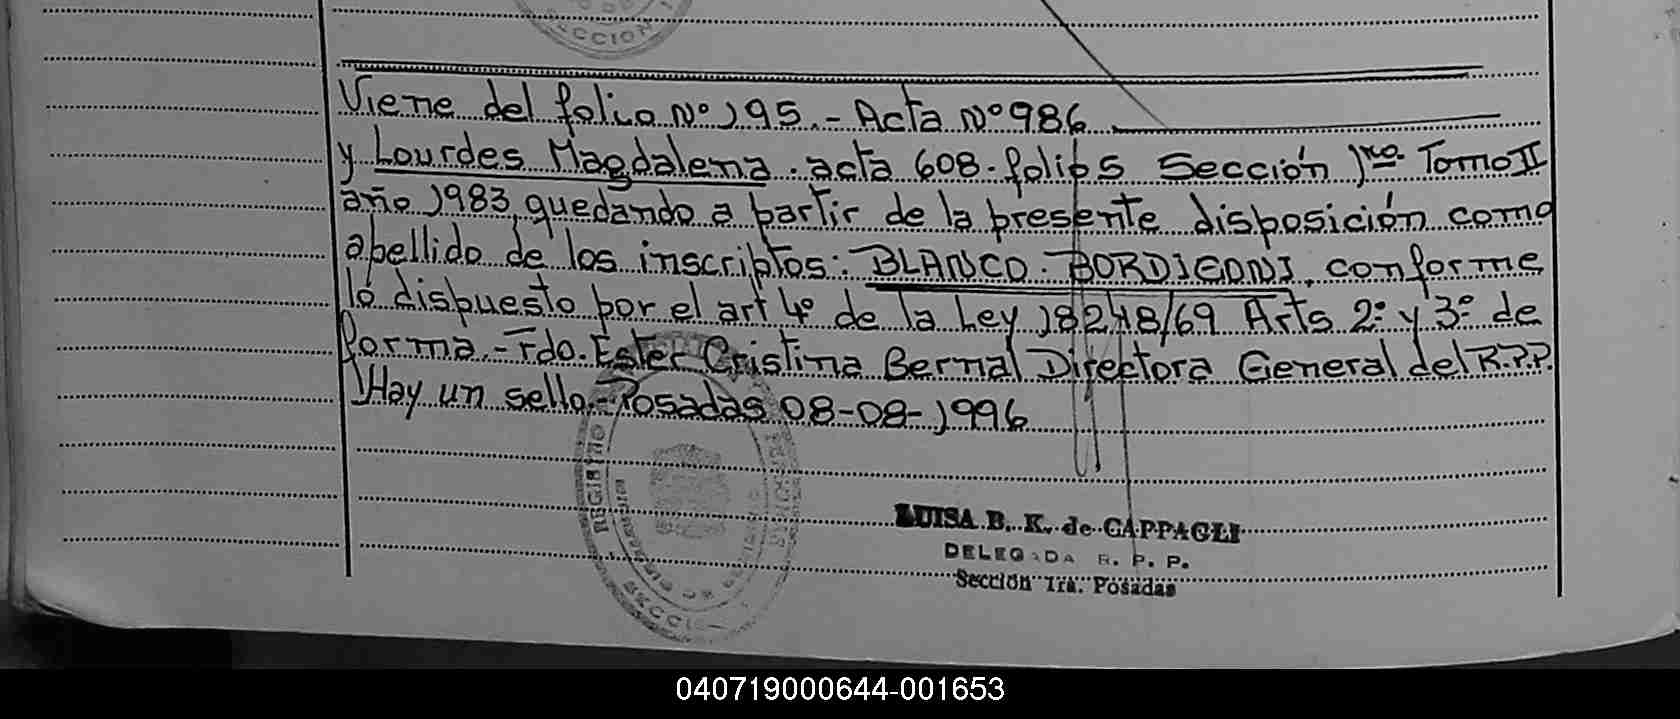 SECCION 1
Viene del folio Nº 195.- Acta Nº 986
y Lourdes Magdalena. acta 608. folio 5 Sección 1ra. Tomo II
año 1983, quedando a partir de la presente disposición como
apellido de los inscriptos: BLANCO. BORDIGONI. conforme
lo dispuesto por el art 4º de la Ley 18248/69 Arts 2º y 3º de
forma.- Fdo. Ester Cristina Bernal Directora General del R.P.P.
Hay un sello.- Posadas 08-08-1996
REGISTRO
LUISA B. K. de CAPPAGLI
DELEGADA R. P. P.
Sección 1ra. Posadas
SECCI
040719000644-001653